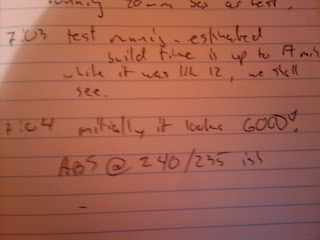 running 20mm ses as test.
7:03 test runnig - estimated
build time is up to 17 min
while it was like 12, we shall
see.
7:04 initially it looks GOOD!
ABS @ 240/235 ish
-